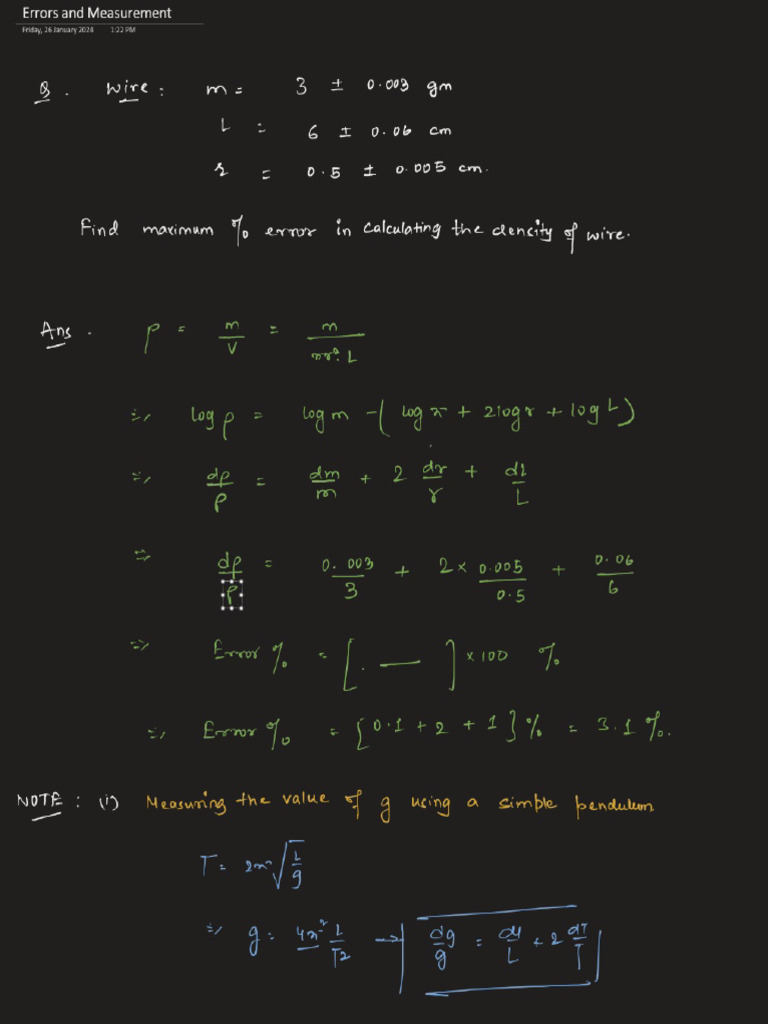 Errors and Measurement
Friday, 26 January 2024 1:22 PM
Q. Wire: m = 3 ± 0.003 gm
L = 6 ± 0.06 cm
r = 0.5 ± 0.005 cm.
Find maximum % error in calculating the density of wire.
Ans. ρ = m/V = m/πr².L
=> log ρ = log m - ( log π + 2 log r + log L )
=> dρ/ρ = dm/m + 2 dr/r + dl/L
=> dρ/ρ = 0.003/3 + 2 × 0.005/0.5 + 0.06/6
=> Error % = [ . — ] × 100 %
=> Error % = [0.1 + 2 + 1] % = 3.1 %.
NOTE: (i) Measuring the value of g using a simple pendulum
T = 2π √L/g
=> g = 4π² L/T2 → dg/g = dl/L + 2 dT/T